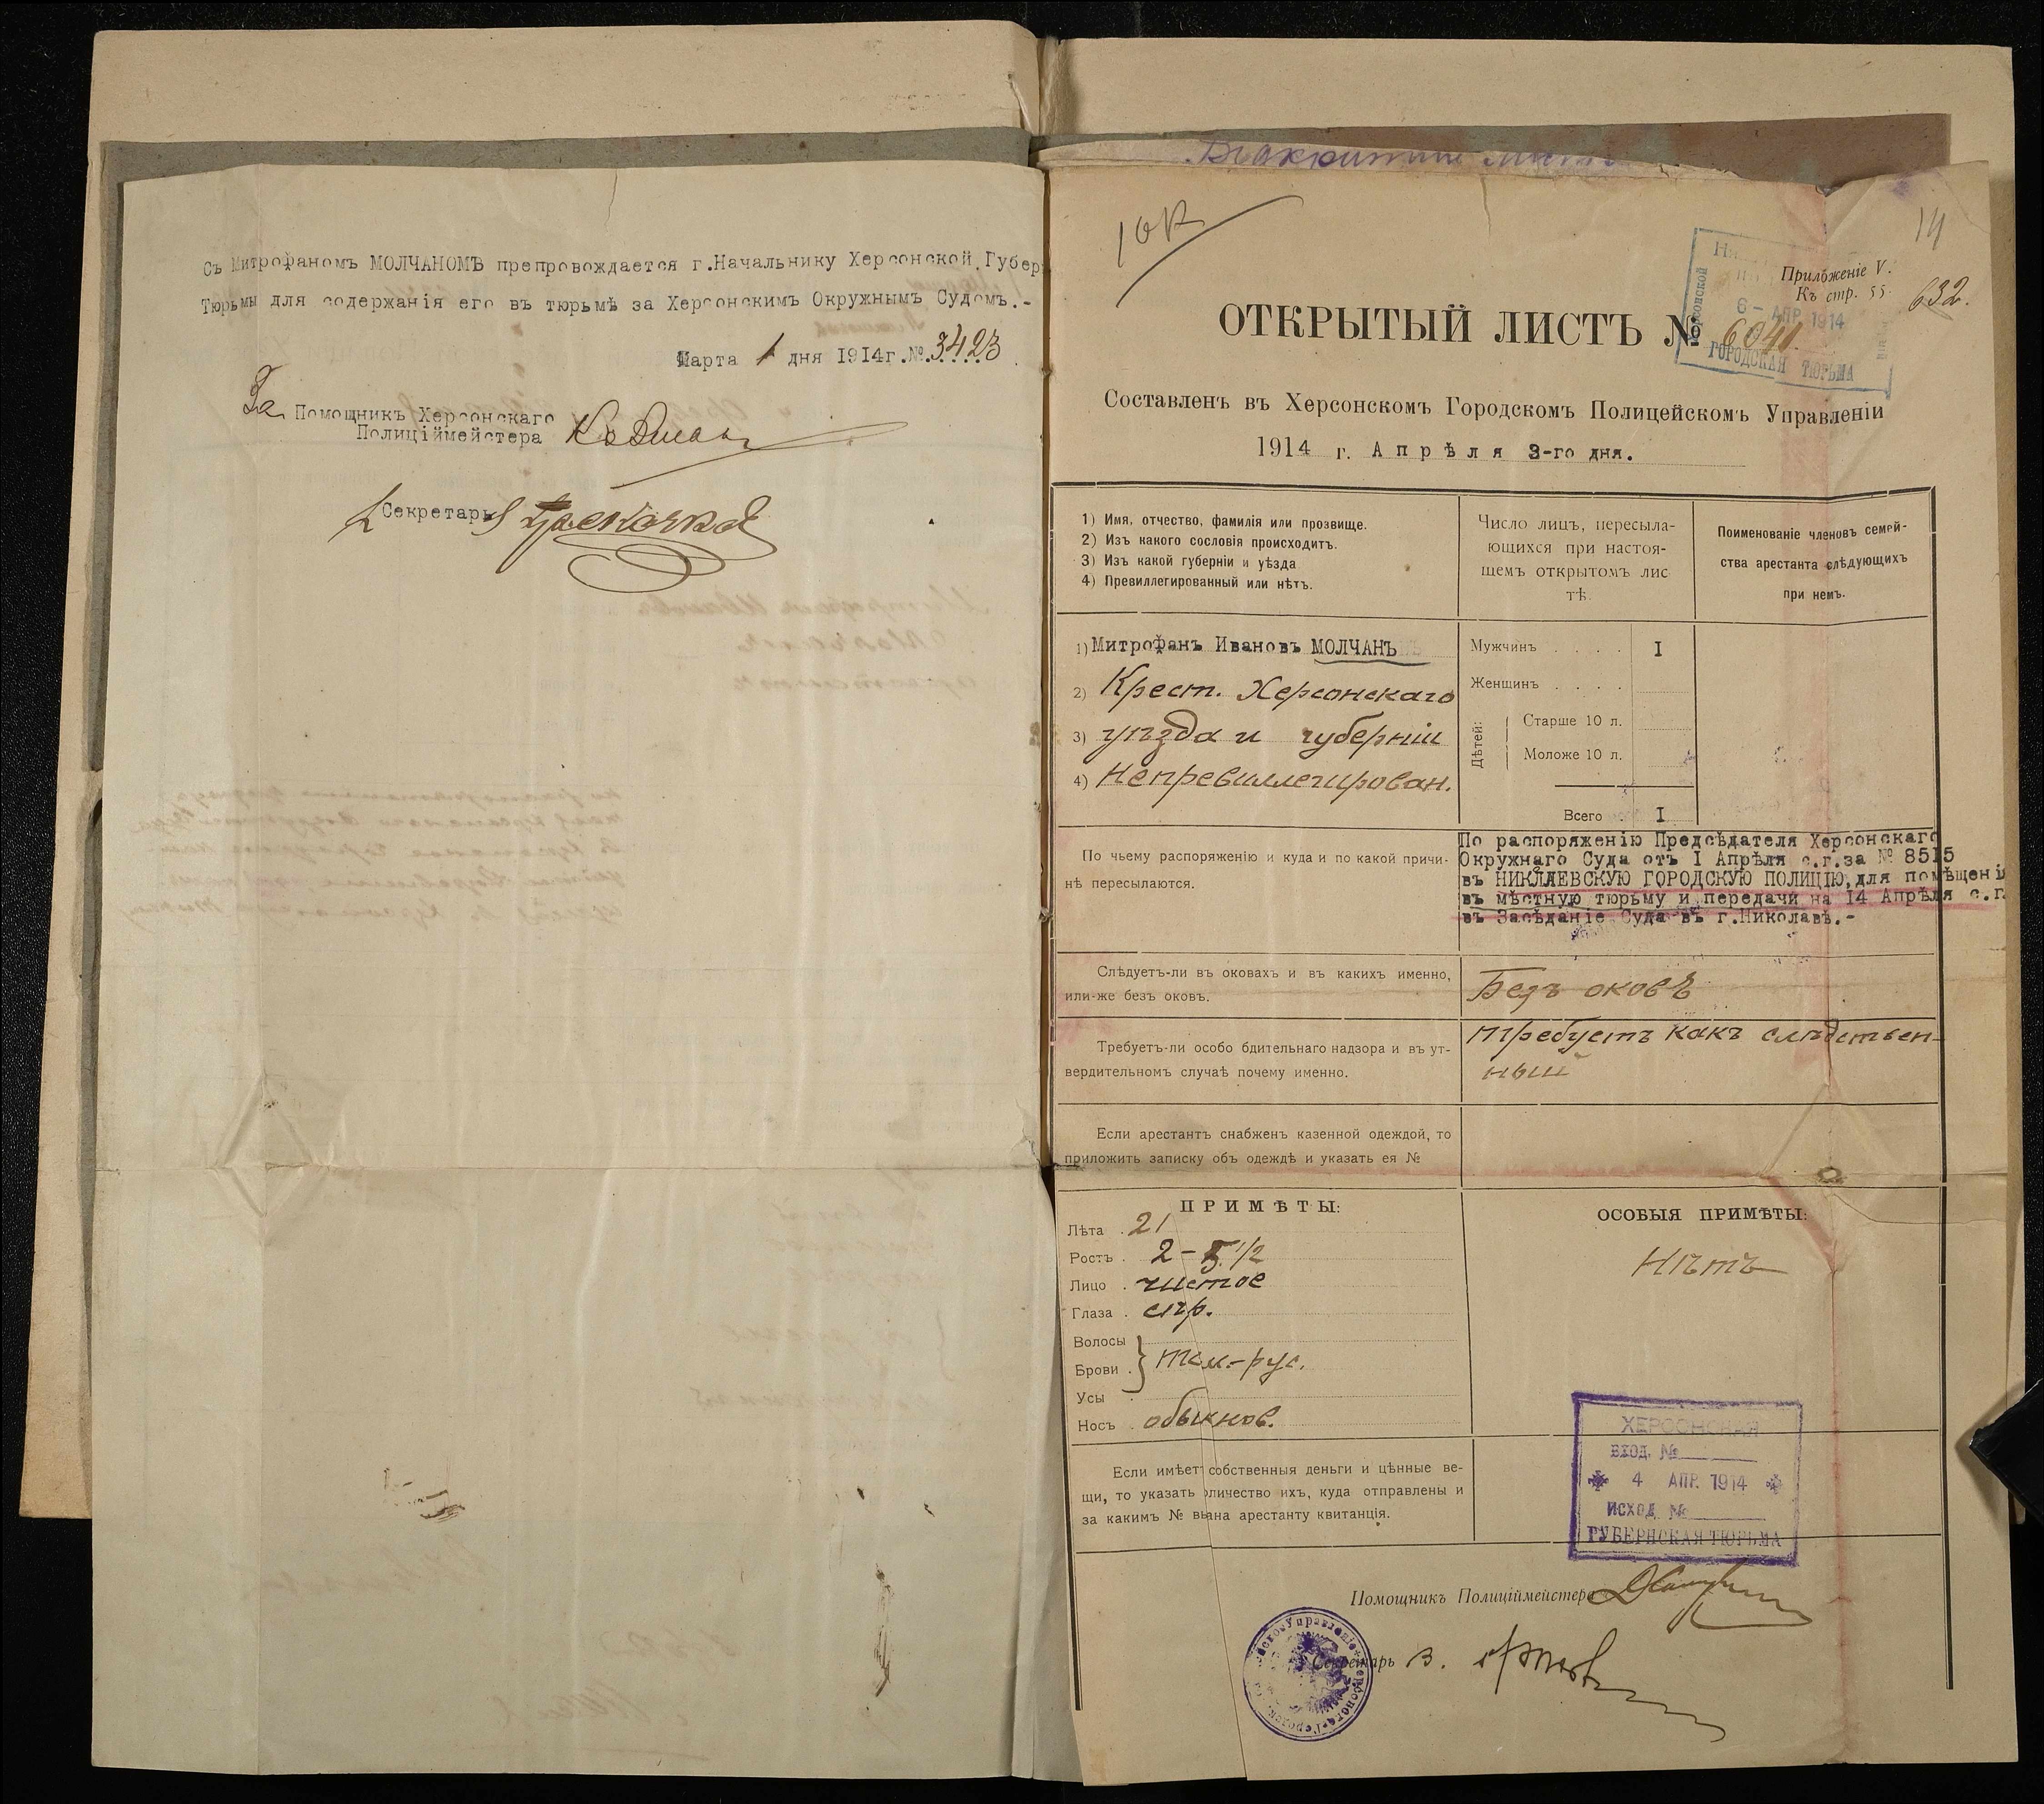 Съ Митрофаномъ МОЛЧАНОМЪ препровождается г.Начальнику Херсонской Губер
Тюрьмы для содержанія его въ тюрьмѣ за Херсонскимъ Окружнымъ Судомъ.-
Марта 1 дня 1914г.№.3423
За Помощникъ Херсонскаго
Полиціймейстера
Секретарь
14
Приложеніе V.
Къ стр. 55.
632.
6 - АПР. 1914
ГОРОДСКАЯ ТЮРЬМА
ОТКРЫТЫЙ ЛИСТЪ № 6041
Составленъ въ Херсонскомъ Городскомъ Полицейскомъ Управленіи
1914 г. Апрѣля 3-го дня.
1) Имя, отчество, фамилія или прозвище.
2) Изъ какого сословія происходитъ.
3) Изъ какой губерніи и уѣзда
4) Превиллегированный или нѣтъ.
Число лицъ, пересыла-
ющихся при настоя-
щемъ открытомъ лис
тѣ.
Поименованіе членовъ семей-
ства арестанта слѣдующихъ
при немъ.
1) Митрофанъ Ивановъ МОЛЧАНЪ
2) Крест. Херсонскаго
3) уѣзда и губерніи
4) Непревиллегирован.
Мужчинъ . . . . I
Женщинъ . . . .
Дѣтей:
Старше 10 л.
Моложе 10 л.
Всего . I
По чьему распоряженію и куда и по какой причи-
нѣ пересылаются.
По распоряженію Предсѣдателя Херсонскаго
Окружнаго Суда отъ I Апрѣля с.г.за № 8515
въ НИКЛАЕВСКУЮ ГОРОДСКУЮ ПОЛИЦІЮ,для помѣщені
въ мѣстную тюрьму и передачи на I4 Апрѣля с.г.
въ Засѣданіе Суда въ г.Николавѣ.-
Слѣдуетъ-ли въ оковахъ и въ какихъ именно,
или-же безъ оковъ.
Безъ оковъ
Требуетъ-ли особо бдительнаго надзора и въ ут-
вердительномъ случаѣ почему именно.
Требуетъ какъ слѣдствен-
ный
Если арестантъ снабженъ казенной одеждой, то
приложить записку объ одеждѣ и указать ея №
ПРИМѢТЫ:
Лѣта . 21
Ростъ . 2 - 5 1/2
Лицо . чистое
Глаза . сѣр.
Волосы
Брови . тем-рус.
Усы
Носъ . обыкнов.
ОСОБЫЯ ПРИМѢТЫ:
Нѣтъ
Если имѣет собственныя деньги и цѣнные ве-
щи, то указать личество ихъ, куда отправлены и
за какимъ № выана арестанту квитанція.
ХЕРСОНСКАЯ
ВХОД. №
4 АПР. 1914
ИСХОД. №
ГУБЕРНСКАЯ ТЮРЬМА
Помощникъ Полиціймейстера
Секретарь В.